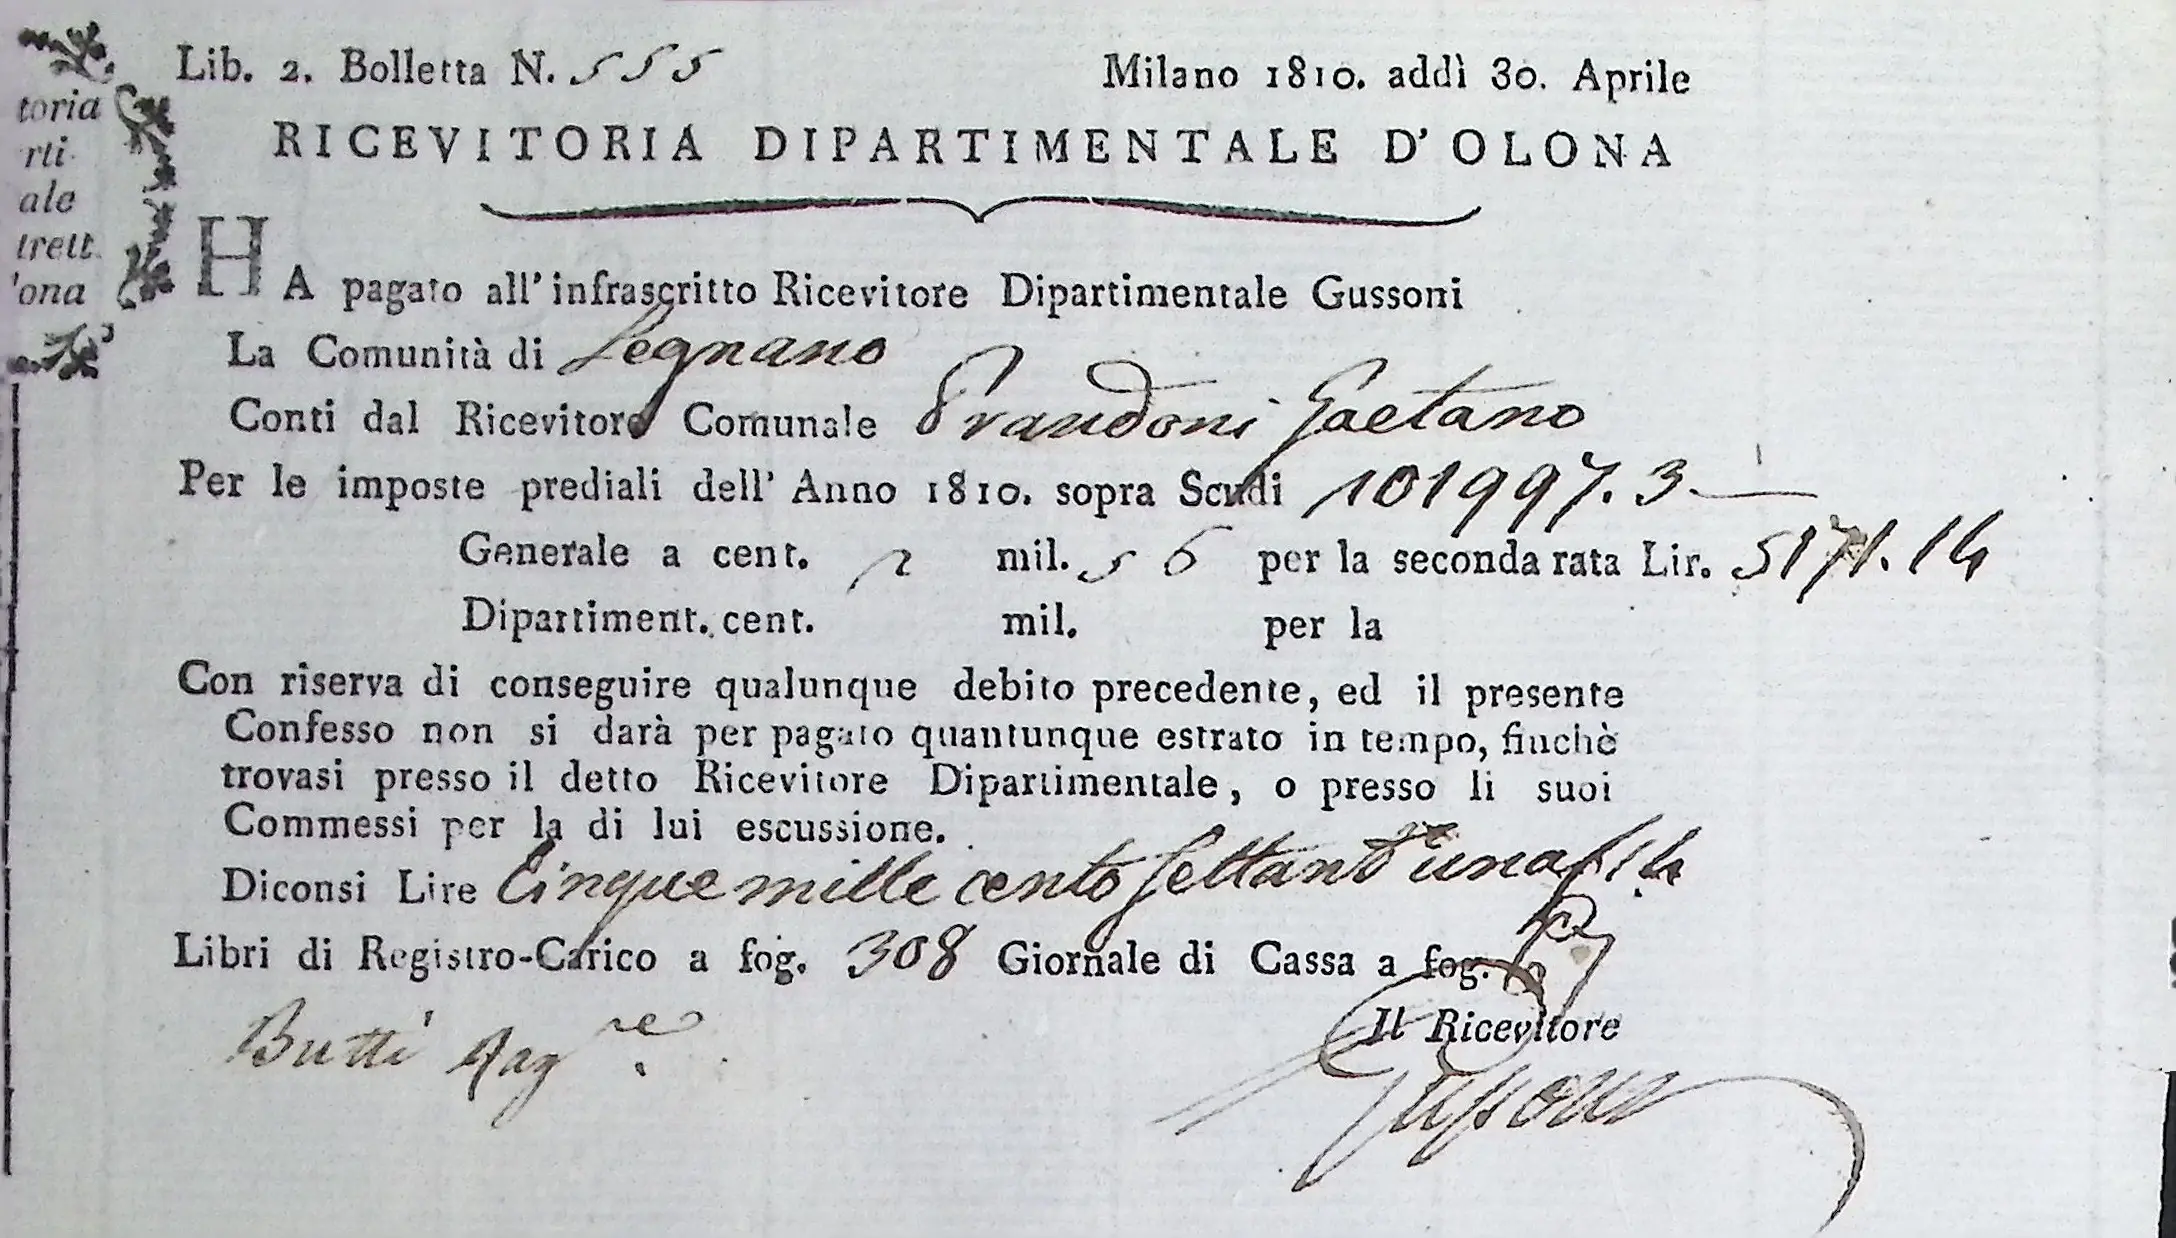 toria
rti
ale
trett.
'ona
Lib. 2. Bolletta N. 555
Milano 1810. addì 30. Aprile
RICEVITORIA DIPARTIMENTALE D'OLONA
HA pagato all'infrascritto Ricevitore Dipartimentale Gussoni
La Comunità di Legnano
Conti dal Ricevitore Comunale Prandoni Gaetano
Per le imposte prediali dell'Anno 1810. sopra Scudi 101997. 3. —
Generale a cent. 2 mil. 56 per la seconda rata Lir. 5171. 14
Dipartiment. cent. mil. per la
Con riserva di conseguire qualunque debito precedente, ed il presente
Confesso non si darà per pagato quantunque estrato in tempo, finchè
trovasi presso il detto Ricevitore Dipartimentale, o presso li suoi
Commessi per la di lui escussione.
Diconsi Lire Cinquemille cento settant'una / 14
Libri di Registro-Carico a fog. 308 Giornale di Cassa a fog.
Il Ricevitore
Butti Rag.re
Gussoni